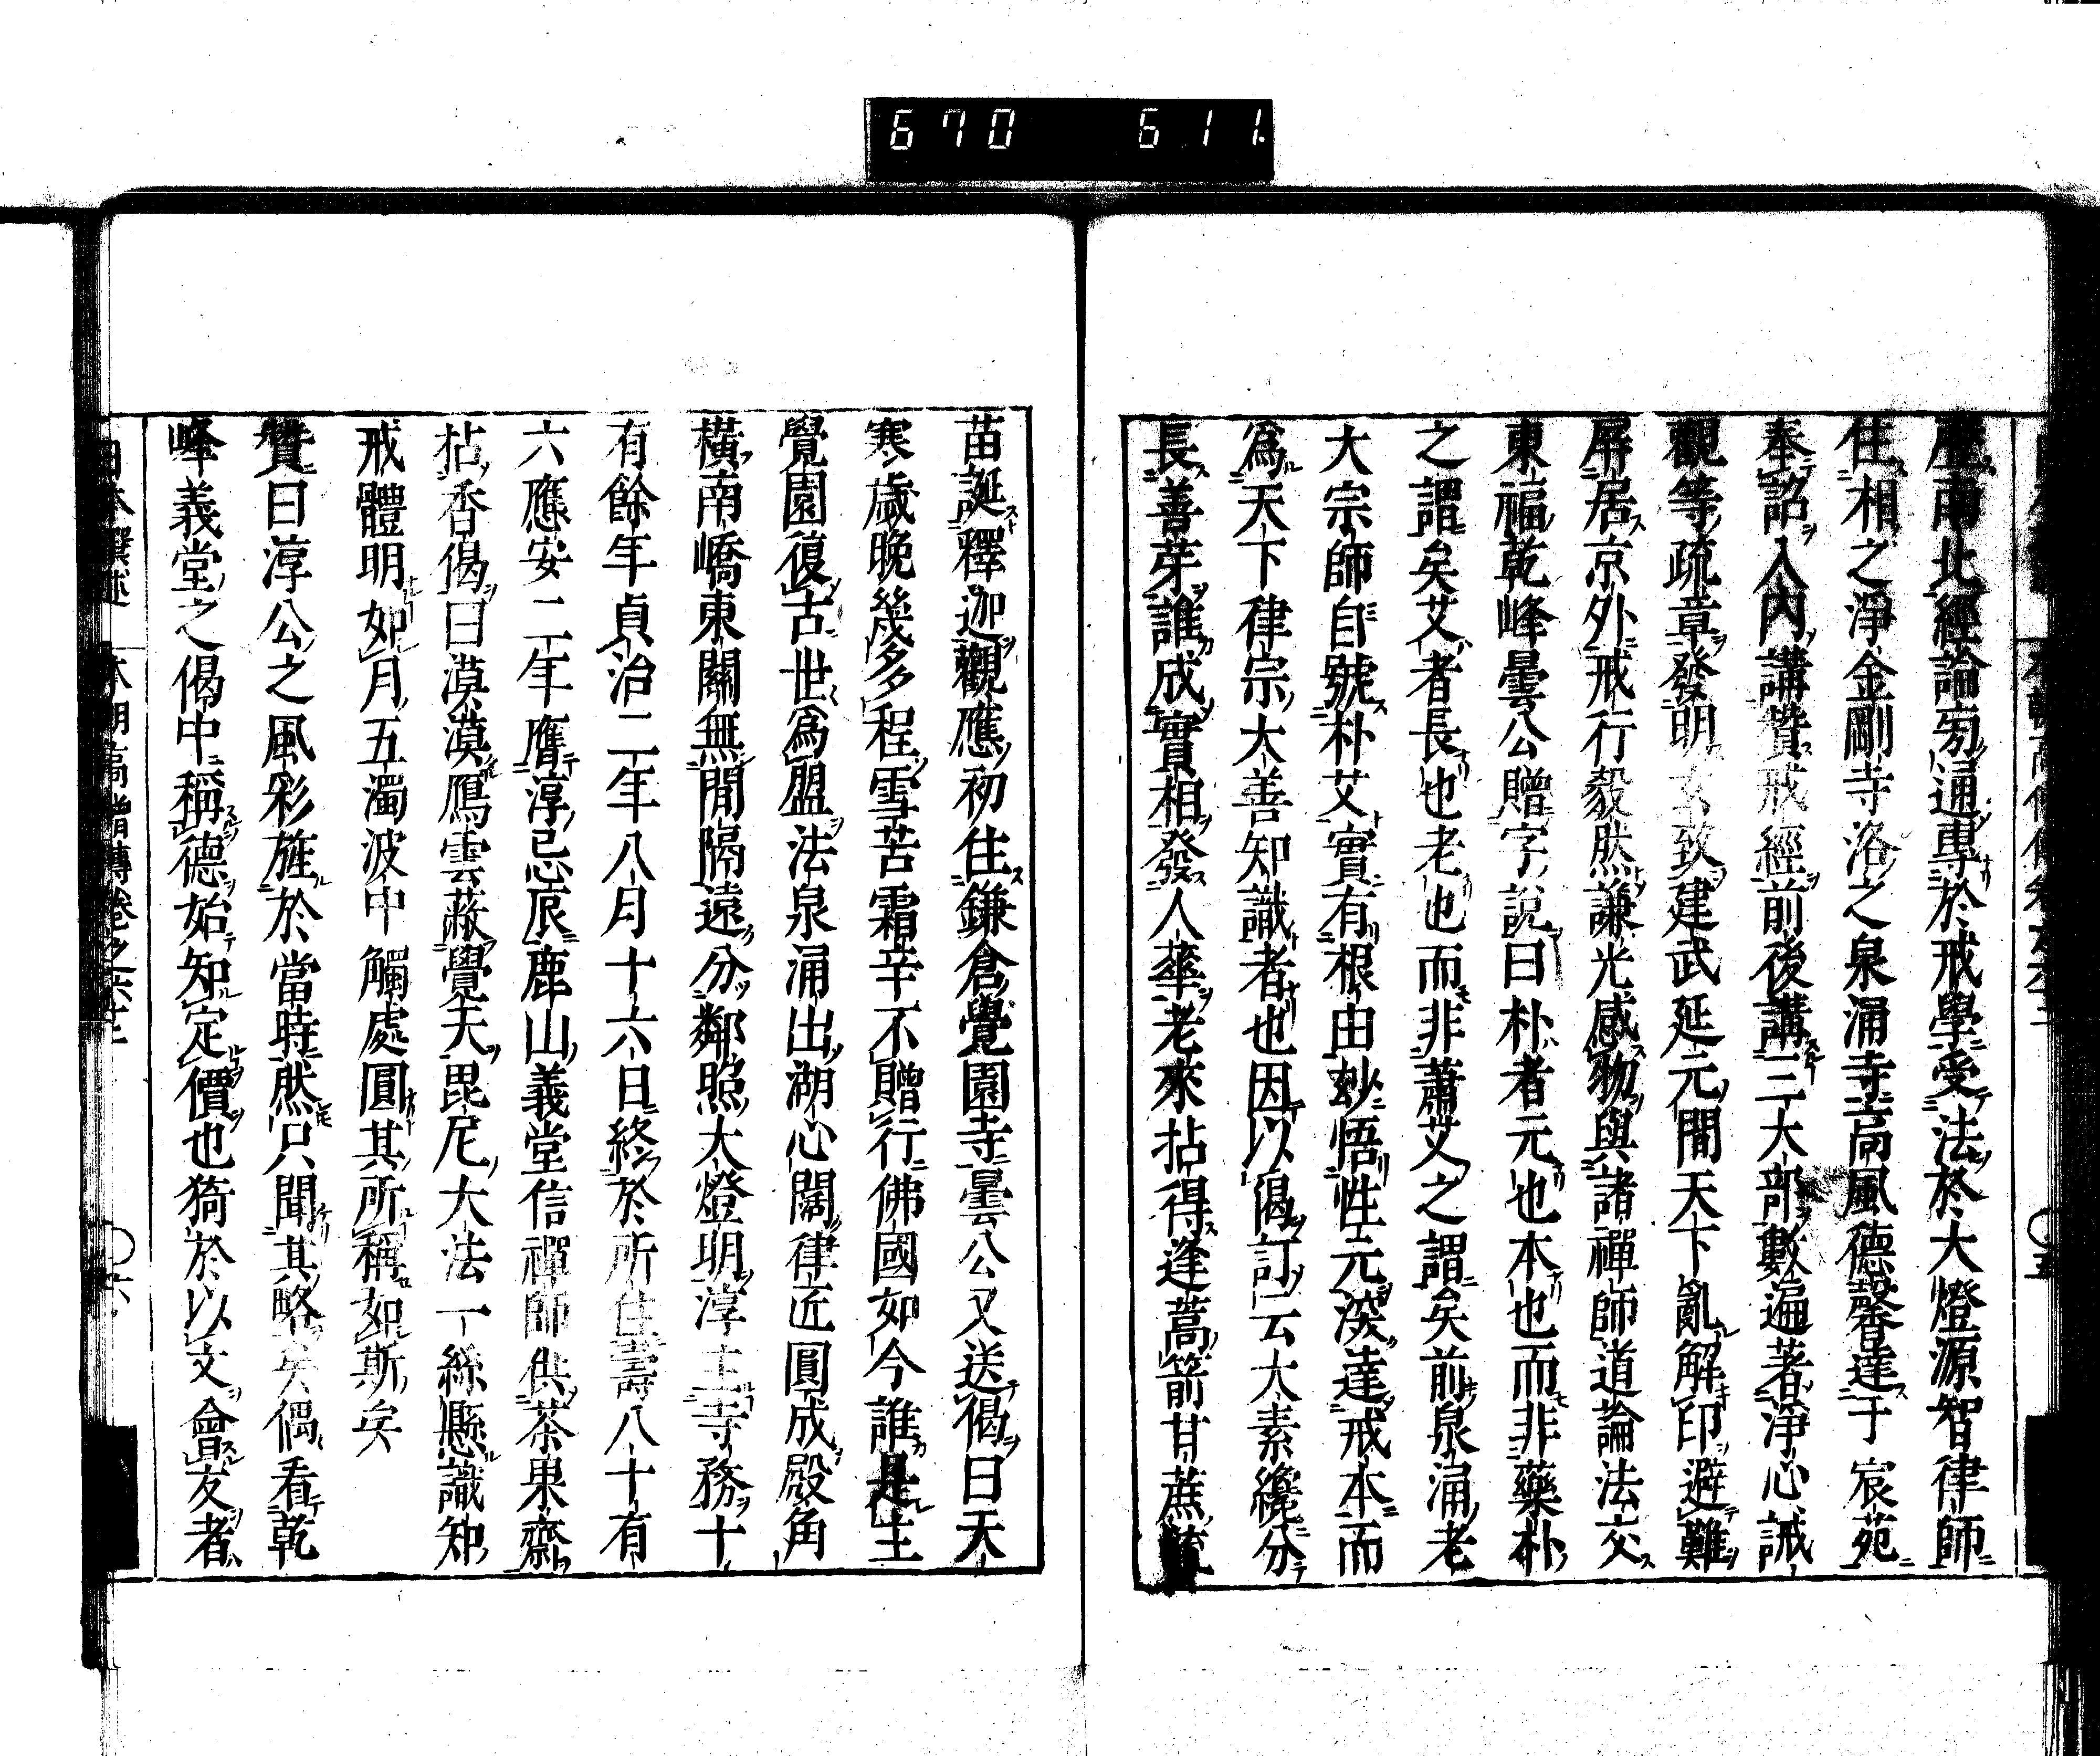 670 611
歷南北經論旁通專於戒學受法於大燈源智律師
住相之淨金剛寺洛之泉涌寺高風德馨達于宸苑
奉詔入內講贊戒經前後講三大部數遍著淨心誡
觀等疏章發明玄致建武延元間天下亂解印避難
屏居京外戒行毅然謙光感物與諸禪師道論法交
東福乾峰曇公贈字說曰朴者元也本也而非藥朴
之謂矣艾者長也老也而非蕭艾之謂矣前泉涌老
大宗師自號朴艾實有根由玅悟性元深達戒本而
爲天下律宗大善知識者也因以偈訂云大素纔分
長善芽誰成實相發人華老來拈得逢蒿箭甘蔗
苗誕釋迦觀應初住鎌倉覺園寺曇公又送偈曰天
寒歲晚幾多程雪苦霜辛不贈行佛國如今誰是主
覺園復古世爲盟法泉涌出湖心闊律匠圓成殿角
橫南嶠東關無閒隔遠分鄰照大燈明淳主寺務十
有餘年貞治二年八月十六日終於所住壽八十有
六應安二年膺淳忌辰鹿山義堂信禪師供茶果齋
拈香偈曰漠漠鴈雲蔽覺天毘尼大法一絲懸識知
戒體明如月五濁波中觸處圓其所稱如斯矣
贊曰淳公之風彩旌於當時然只聞其略矣偶看乾
峰義堂之偈中稱德始知定價也猗於以文會友者
日本撰述 本朝高僧傳卷之六十二 〇六